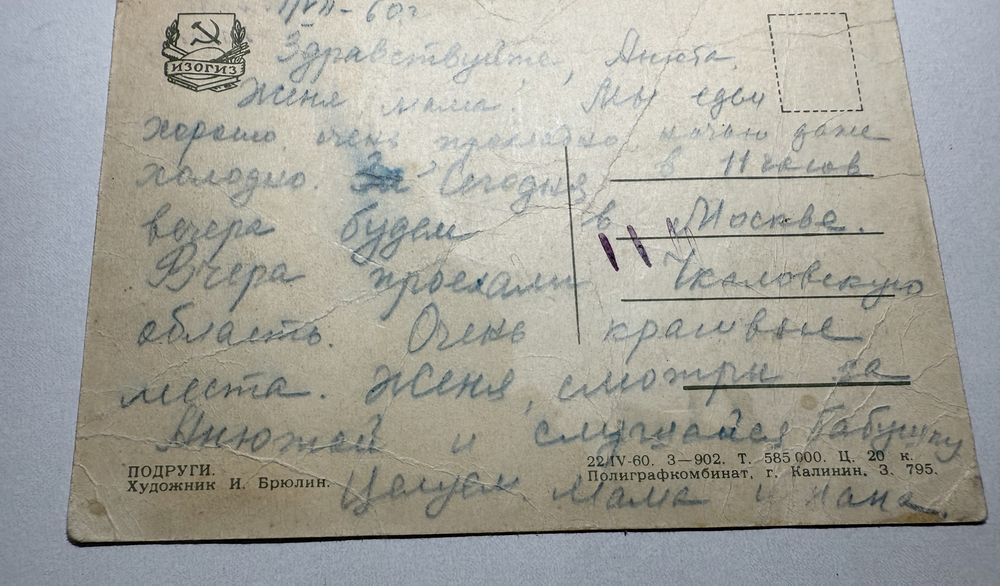 60 г
ИЗОГИЗ
Здравствуйте, Анюта,
Женя мама! Мы едем
хорошо, очень прохладно, ночью даже
холодно. Сегодня в 11 часов
вечера будем в Москве.
11
Вчера проехали Чкаловскую
область. Очень красивые
места. Женя, смотри за
Анютой и слушайся бабушку
Целуем Мама и папа.
ПОДРУГИ.
Художник И. Брюлин.
22/IV-60. З—902. Т. 585 000. Ц. 20 к.
Полиграфкомбинат, г. Калинин. З. 795.